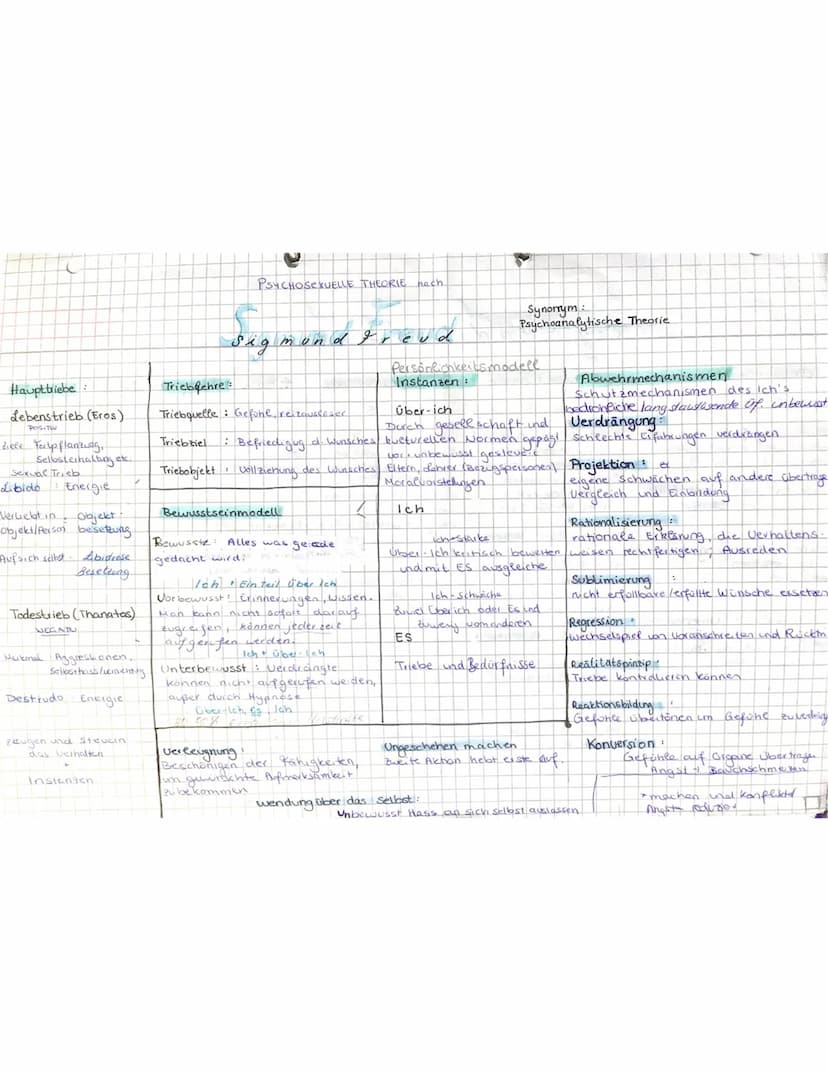 PSYCHOSEXUELLE THEORIE nach
Sigmund Freud
Synonym:
Psychoanalytische Theorie
Haupttriebe:
Lebenstrieb (Eros)
POSITIV
Ziele: Fortpflanzung,
Selbsterhaltung etc.
Sexual Trieb
Libido : Energie
Verliebt in : Objekt
Objekt/Person besetzung
Auf sich selbst : Libidnöse
Besetzung
Todestrieb (Thanatos)
NEGATIV
Aggressionen,
Selbsthass/
Destrudo : Energie
zeugen und steuern
das Verhalten
+
Instanzen
Trieblehre:
Triebquelle : Gefühl, reizauslöser
Triebziel : Befriedigug d. Wunsches
Triebobjekt : Vollziehung des Wunsches
Bewusstseinmodell
Bewusste: Alles was gerade
gedacht wird.
Ich + Ein teil Über Ich
Vorbewusst: Erinnerungen, Wissen.
Man kann nicht sofort darauf
zugreifen, können jeder zeit
aufgerufen werden.
Ich + über-Ich
Unterbewusst : Verdrängte
können nicht aufgerufen weiden,
außer durch Hypnose
Über Ich, Es, Ich
Persönlichkeitsmodell
Instanzen :
Über-ich
Durch gesellschaft und
kulturellen Normen gepägt
vor. unbewusst gesteuert
Eltern, Lehrer (Bezugspersonen)
Moralvorstellungen
Ich
Ich-Stärke
Über-Ich kritisch bewerten
und mit ES ausgleiche
Ich-Schwäche
zuviel Über ich oder Es und
zuwenig vom anderen
ES
Triebe und Bedürfnisse
Abwehrmechanismen
Schutzmechanismen des Ich's
bedrohliche Angstauslösende öf. unbewusst
Verdrängung:
schlechte Erfahrungen verdrängen
Projektion :
eigene Schwächen auf andere übertrage
Vergleich und Einbildung
Rationalisierung :
rationale Erklärung, die Verhaltens-
weisen rechtfertigen ; Ausreden
Sublimierung :
nicht erfüllbare/erfüllte Wünsche ersetzen
Regression :
Wechselspiel von Voranschreiten und Rückm
Realitätsprinzip :
Triebe kontrollieren können
Reaktionsbildung :
Gefühle übertönen um Gefühle zu
Verleugnung :
Beschönigen der Fähigkeiten,
um gewünschte Aufmerksamkeit
zu bekommen
Ungeschehen machen
Zweite Aktion hebt erste auf.
Konversion :
Gefühle auf Organe übertrage
Angst → Bauchschmerzen
Wendung über das Selbst:
Unbewusst Hass an sich selbst auslassen
* machen und Konflikte
Ängste